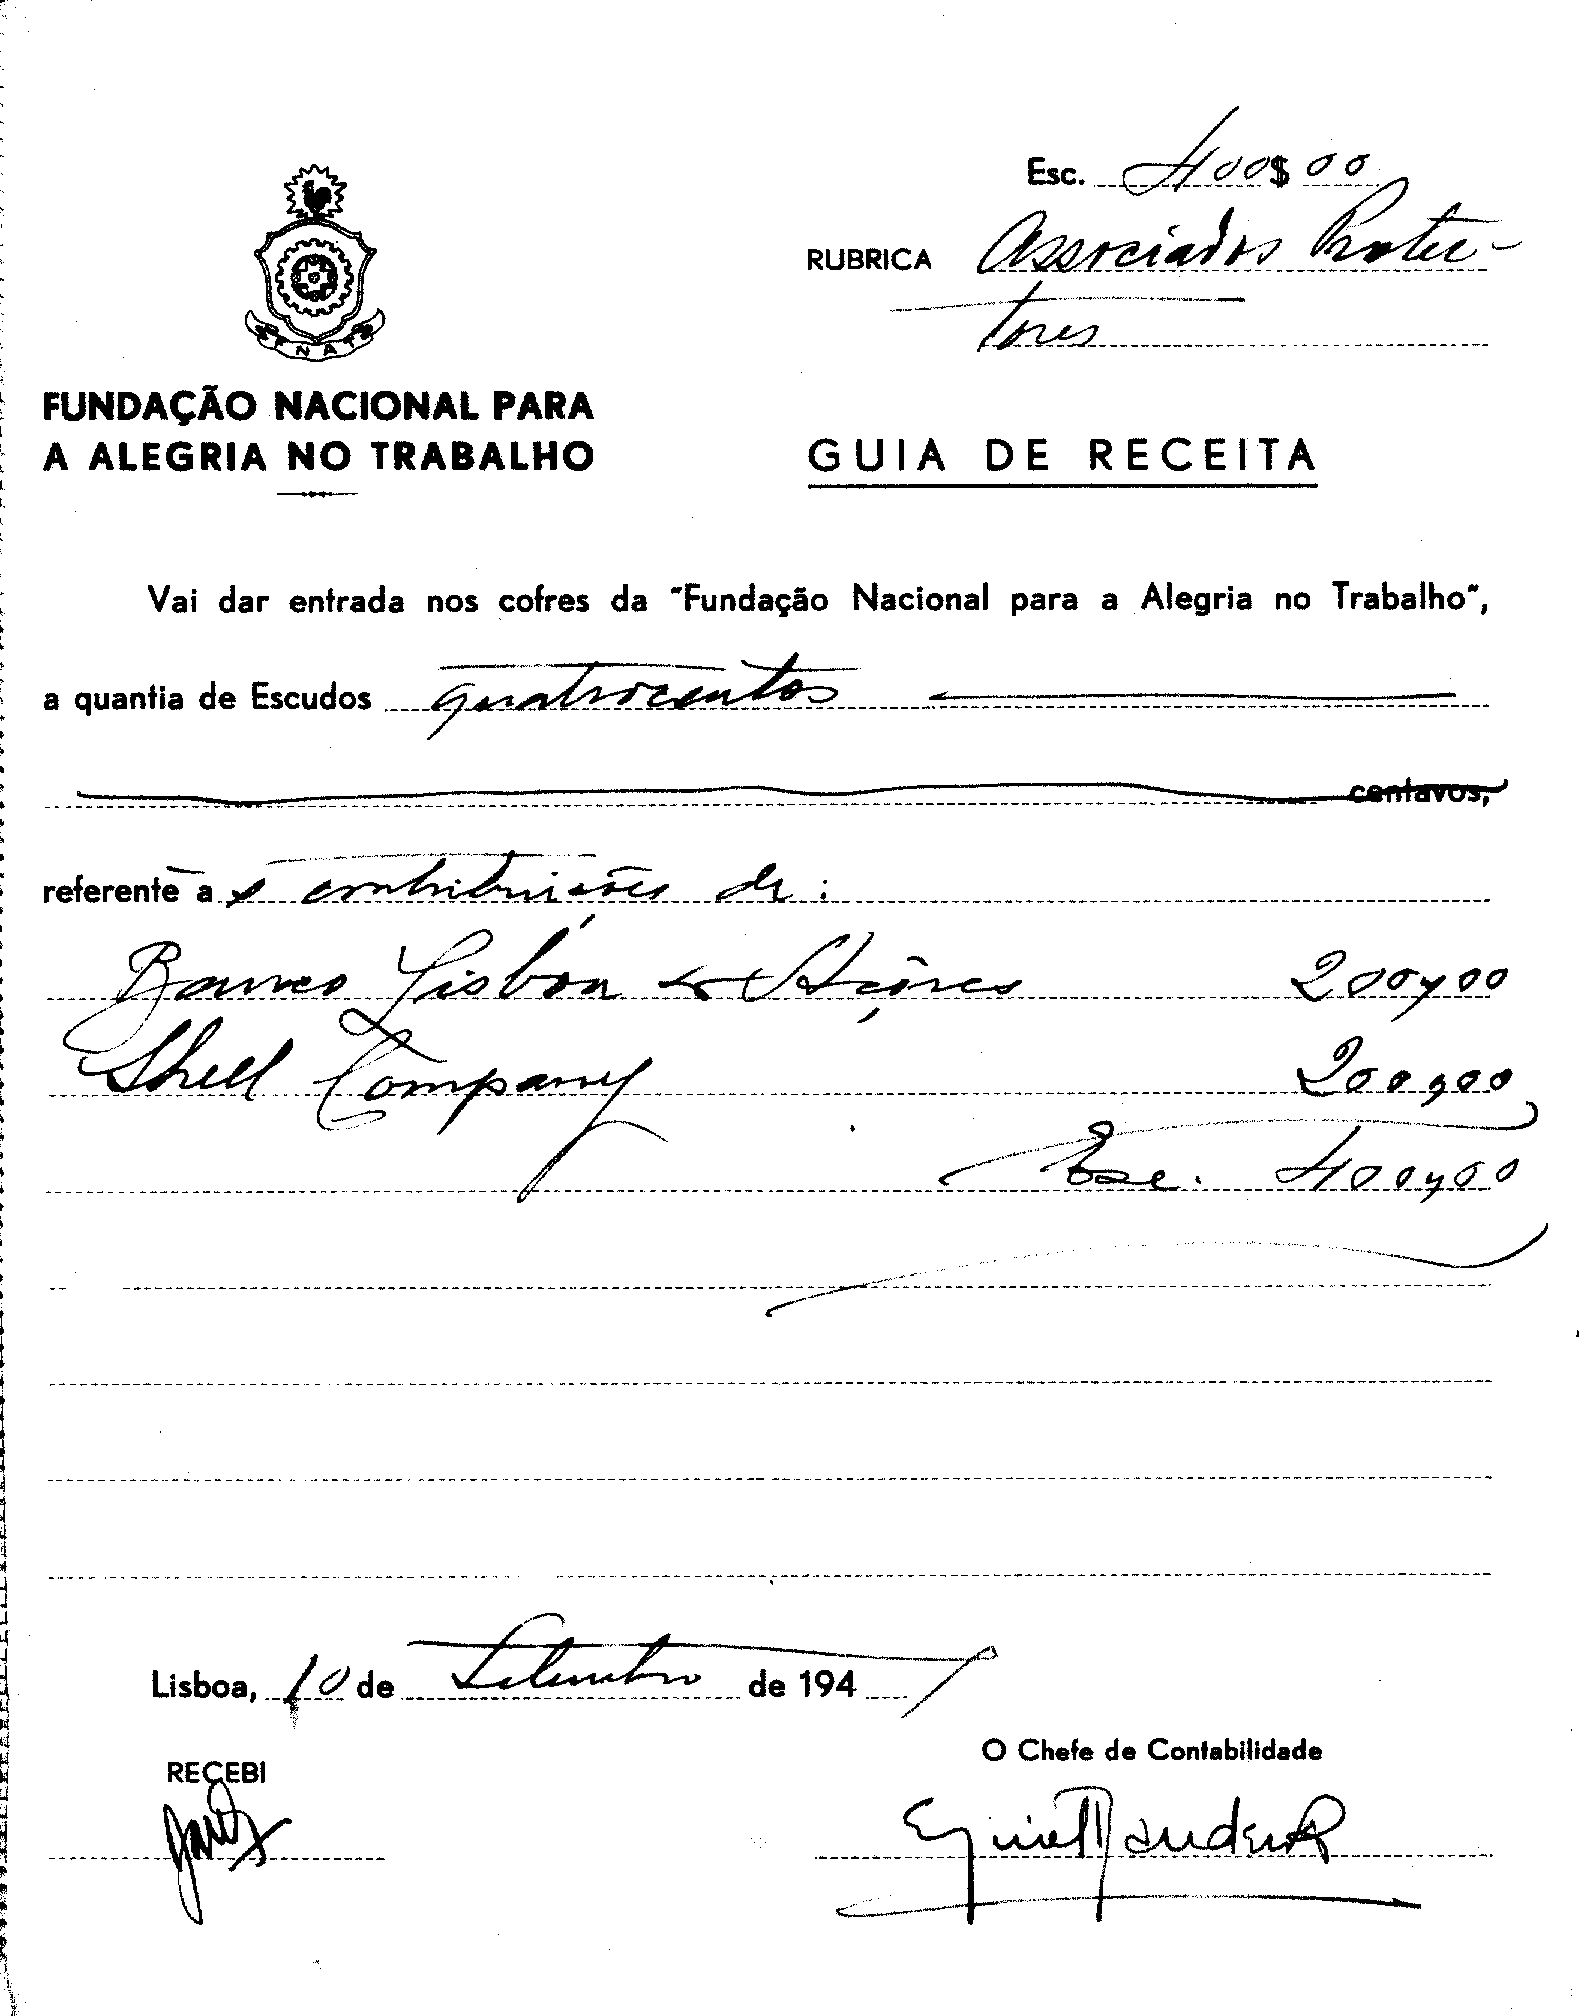 Esc. 400$00
RUBRICA Associados Protec-
tores
FNAT
FUNDAÇÃO NACIONAL PARA
A ALEGRIA NO TRABALHO
GUIA DE RECEITA
Vai dar entrada nos cofres da "Fundação Nacional para a Alegria no Trabalho",
a quantia de Escudos quatrocentos
centavos,
referente a contribuições de:
Banco Lisboa & Açôres 200$00
Shell Company 200$00
Esc. 400$00
Lisboa, 10 de Setembro de 1947
RECEBI
O Chefe de Contabilidade